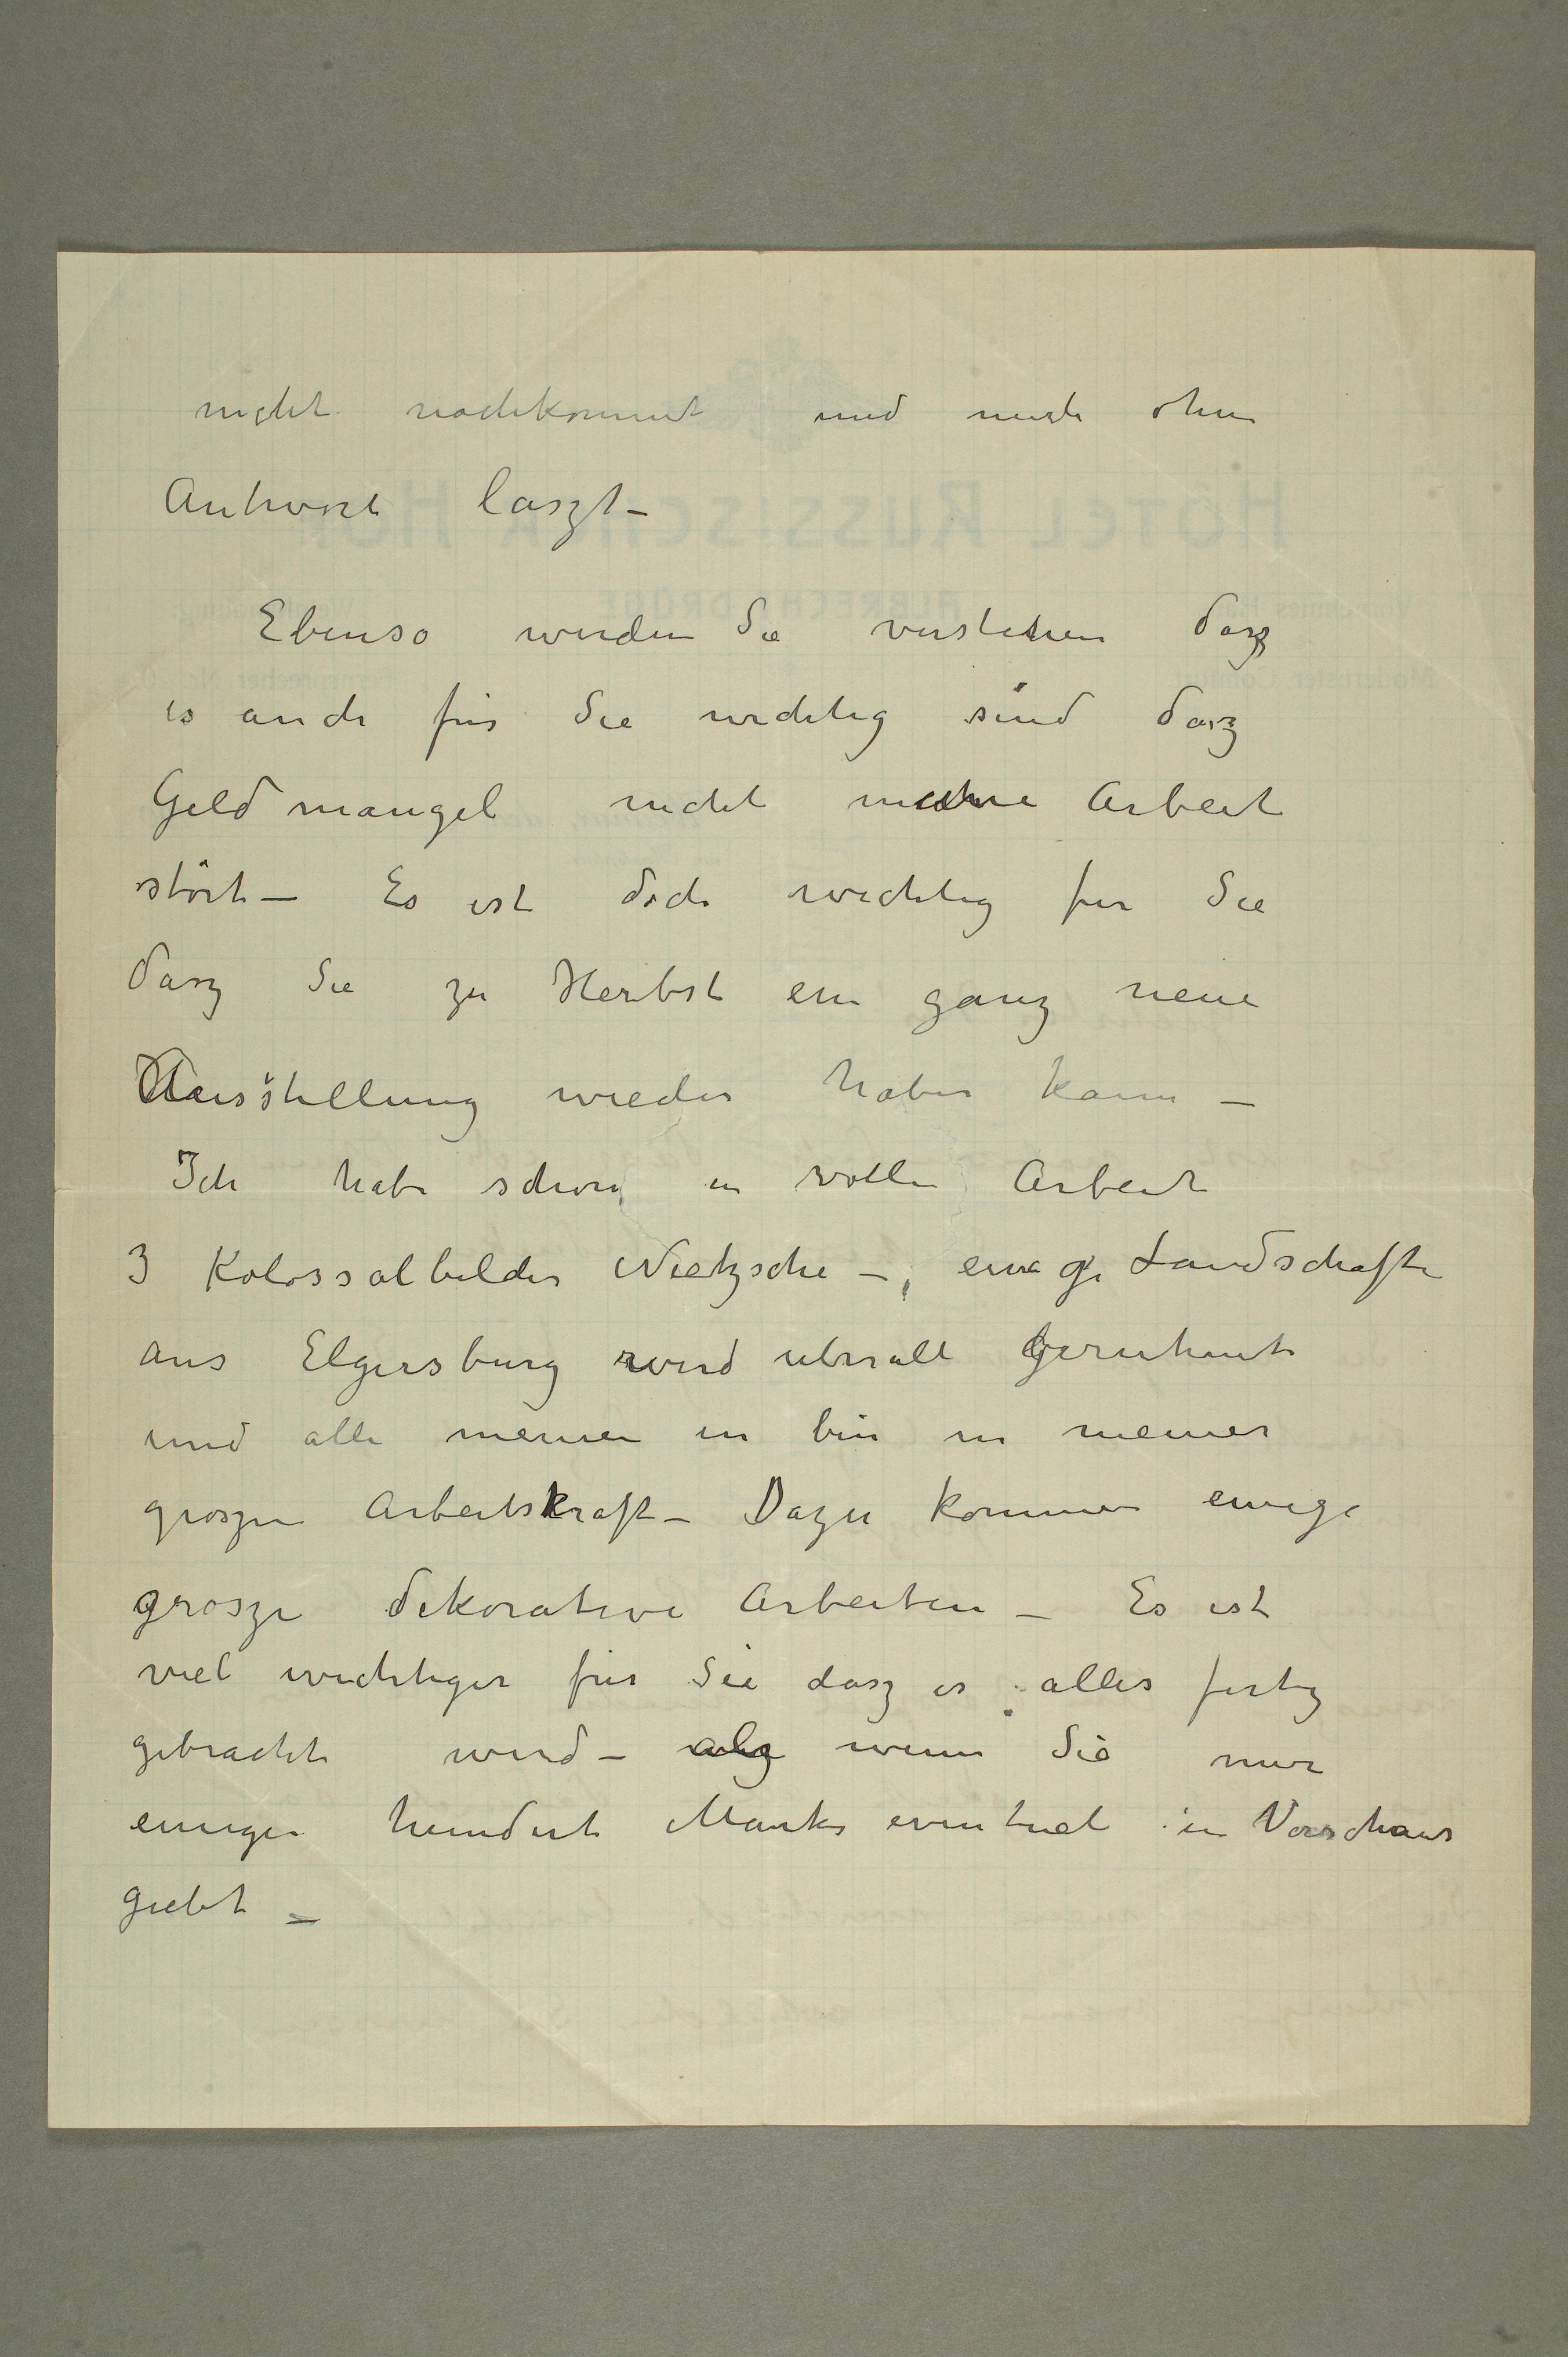 nicht nachkommt und mich ohne
Antwort laszt –
Ebenso werden Sie verstehen dasz
es auch für Sie wichtig sind dasz
Geldmangel nicht meine Arbeit
stört – Es ist doch wichtig fur Sie
dasz Sie zu Herbst ein ganz neue
Ausstellung wieder haben kann –
Ich habe schon in voller Arbeit
3 Kolossalbilder Nietzsche –, einige Landschafte
aus Elgersburg wird uberall geruhmt
und alle meinen in bin in meiner
groszen Arbeitskraft – Dazu kommen einige
grosze dekorative Arbeiten – Es ist
viel wichtiger für Sie dasz es alles fertig
gebracht wird – als wenn Sie mir
einigen hundert Mark eventuel in Vorschaus
giebt –
HOTEL RUSSISCHER HOF